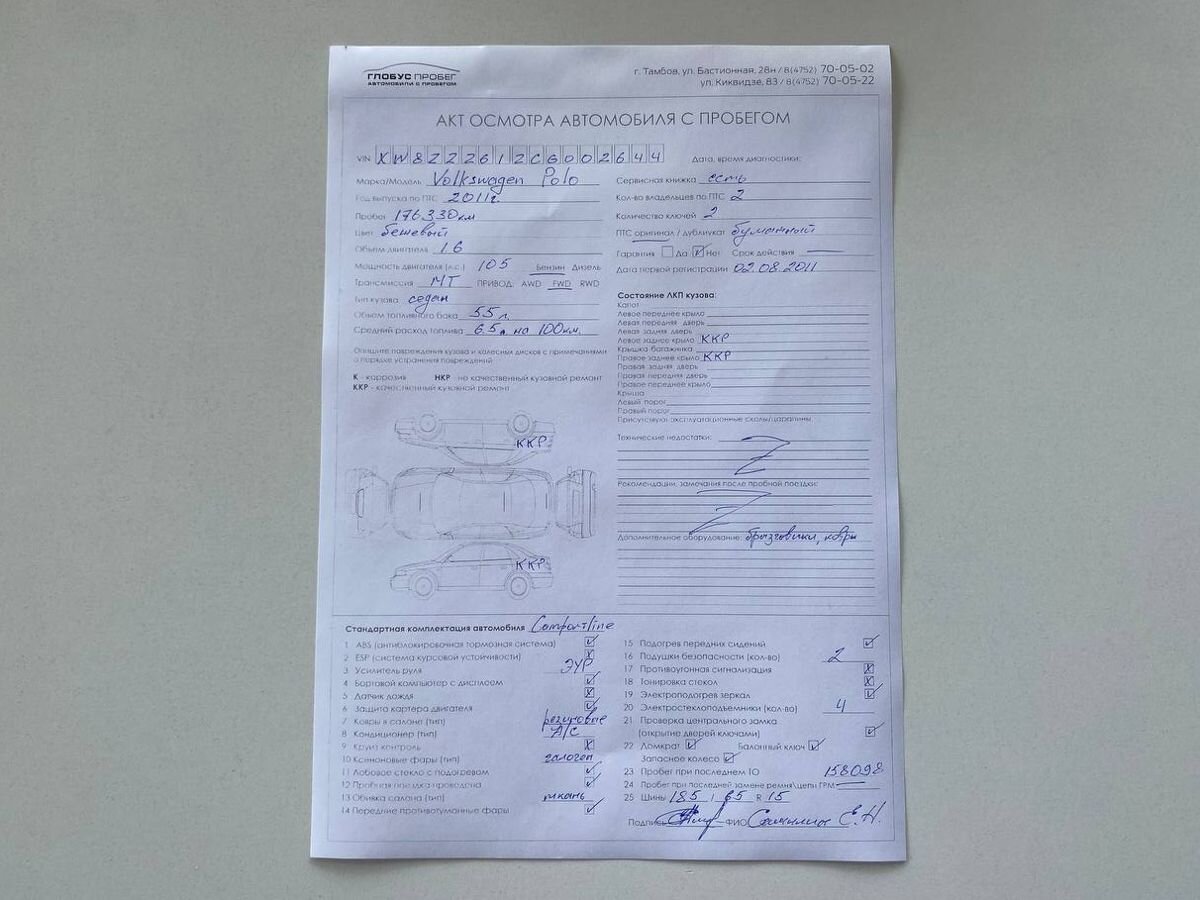 ГЛОБУС ПРОБЕГ
АВТОМОБИЛИ С ПРОБЕГОМ
г. Тамбов, ул. Бастионная, 28н / 8(4752) 70-05-02
ул. Киквидзе, 83 / 8(4752) 70-05-22
АКТ ОСМОТРА АВТОМОБИЛЯ С ПРОБЕГОМ
VIN XW8ZZZ61ZCG002644
Дата, время диагностики:
Марка/Модель Volkswagen Polo
Год выпуска по ПТС 2011г.
Пробег 176330км
Цвет бежевый
Объем двигателя 1.6
Мощность двигателя (л.с.) 105 Бензин Дизель
Трансмиссия МТ ПРИВОД: AWD FWD RWD
Тип кузова седан
Объем топливного бака 55л.
Средний расход топлива 6.5л на 100км.
Сервисная книжка есть
Кол-во владельцев по ПТС 2
Количество ключей 2
ПТС оригинал / дубликат бумажный
Гарантия Да Нет Срок действия
Дата первой регистрации 02.08.2011
Опишите повреждения кузова и колесных дисков с примечаниями
о порядке устранения повреждений
К - коррозия НКР - не качественный кузовной ремонт
ККР - качественный кузовной ремонт
ККР
ККР
Состояние ЛКП кузова:
Капот
Левое переднее крыло
Левая передняя дверь
Левая задняя дверь
Левое заднее крыло ККР
Крышка багажника
Правое заднее крыло ККР
Правая задняя дверь
Правая передняя дверь
Правое переднее крыло
Крыша
Левый порог
Правый порог
Присутствуют эксплуатационные сколы/царапины.
Технические недостатки: Z
Рекомендации, замечания после пробной поездки:
Z
Дополнительное оборудование: брызговики, ковры
Стандартная комплектация автомобиля Comfortline
1 ABS (антиблокировочная тормозная система)
2 ESP (система курсовой устойчивости)
3 Усилитель руля ЭУР
4 Бортовой компьютер с дисплеем
5 Датчик дождя
6 Защита картера двигателя
7 Ковры в салоне (тип) резиновые
8 Кондиционер (тип) A/C
9 Круиз контроль
10 Ксеноновые фары (тип) галоген
11 Лобовое стекло с подогревом
12 Пробная поездка проведена
13 Обивка салона (тип) ткань
14 Передние противотуманные фары
15 Подогрев передних сидений
16 Подушки безопасности (кол-во) 2
17 Противоугонная сигнализация
18 Тонировка стекол
19 Электроподогрев зеркал
20 Электростеклоподъемники (кол-во) 4
21 Проверка центрального замка
(открытие дверей ключами)
22 Домкрат Балонный ключ
Запасное колесо
23 Пробег при последнем ТО 158098
24 Пробег при последней замене ремня\цепи ГРМ
25 Шины 185 / 65 R 15
Подпись ФИО С.Н.